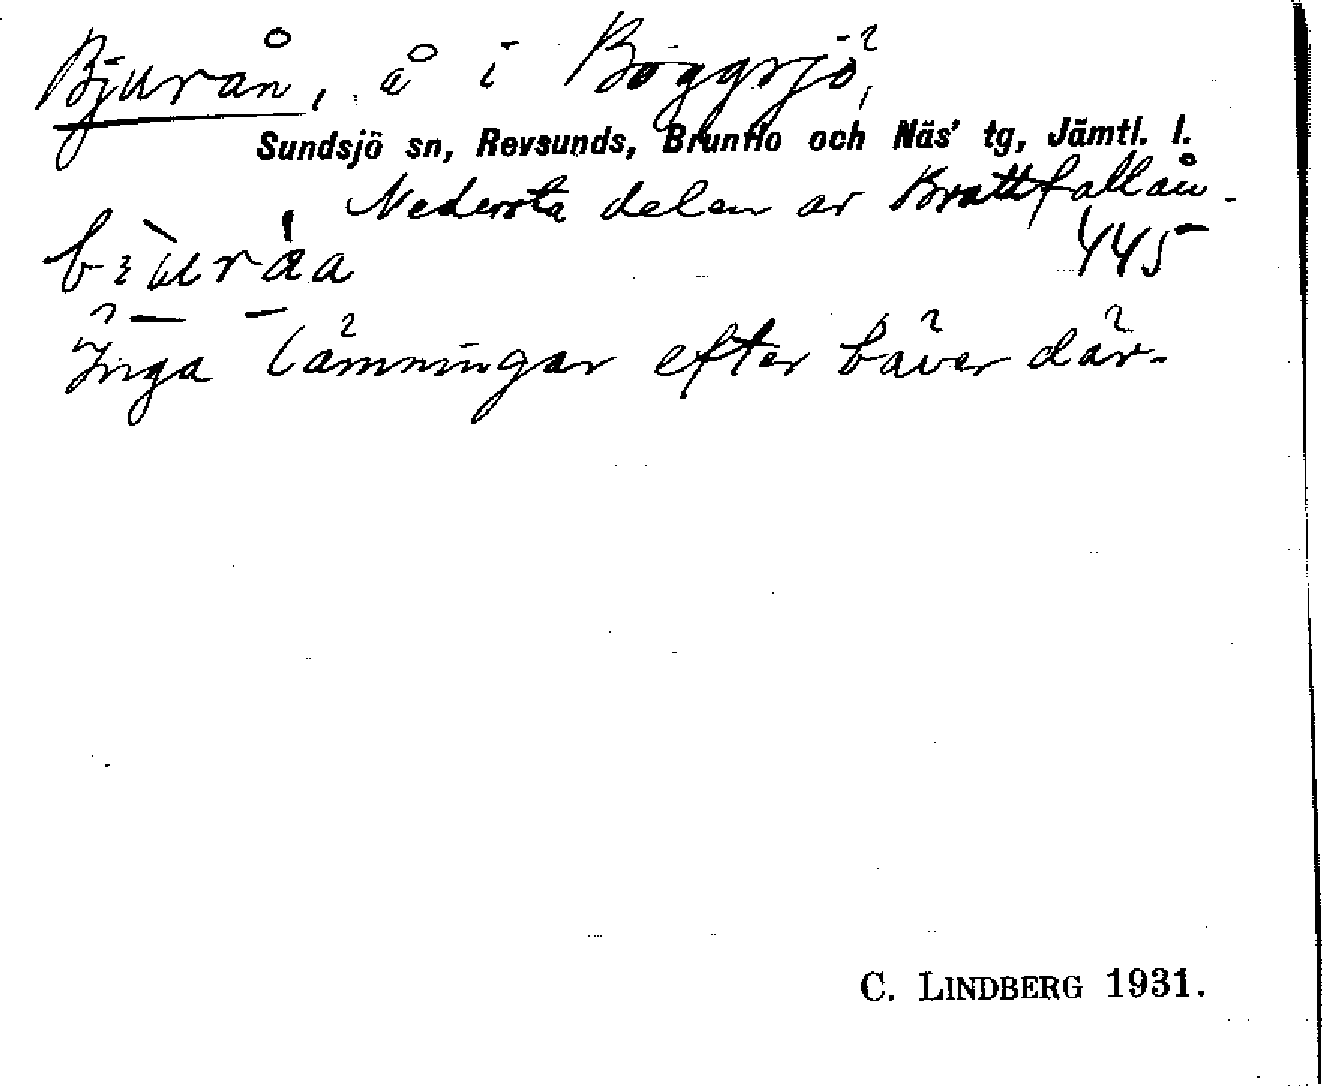 Bjurån, å i Böggsjö,
Sundsjö sn, Revsunds, Brunflo och Näs' tg, Jämtl. l.
Nedersta delen av Brattfallån.
445
Inga lämningar efter bäver där.
C. LINDBERG 1931.